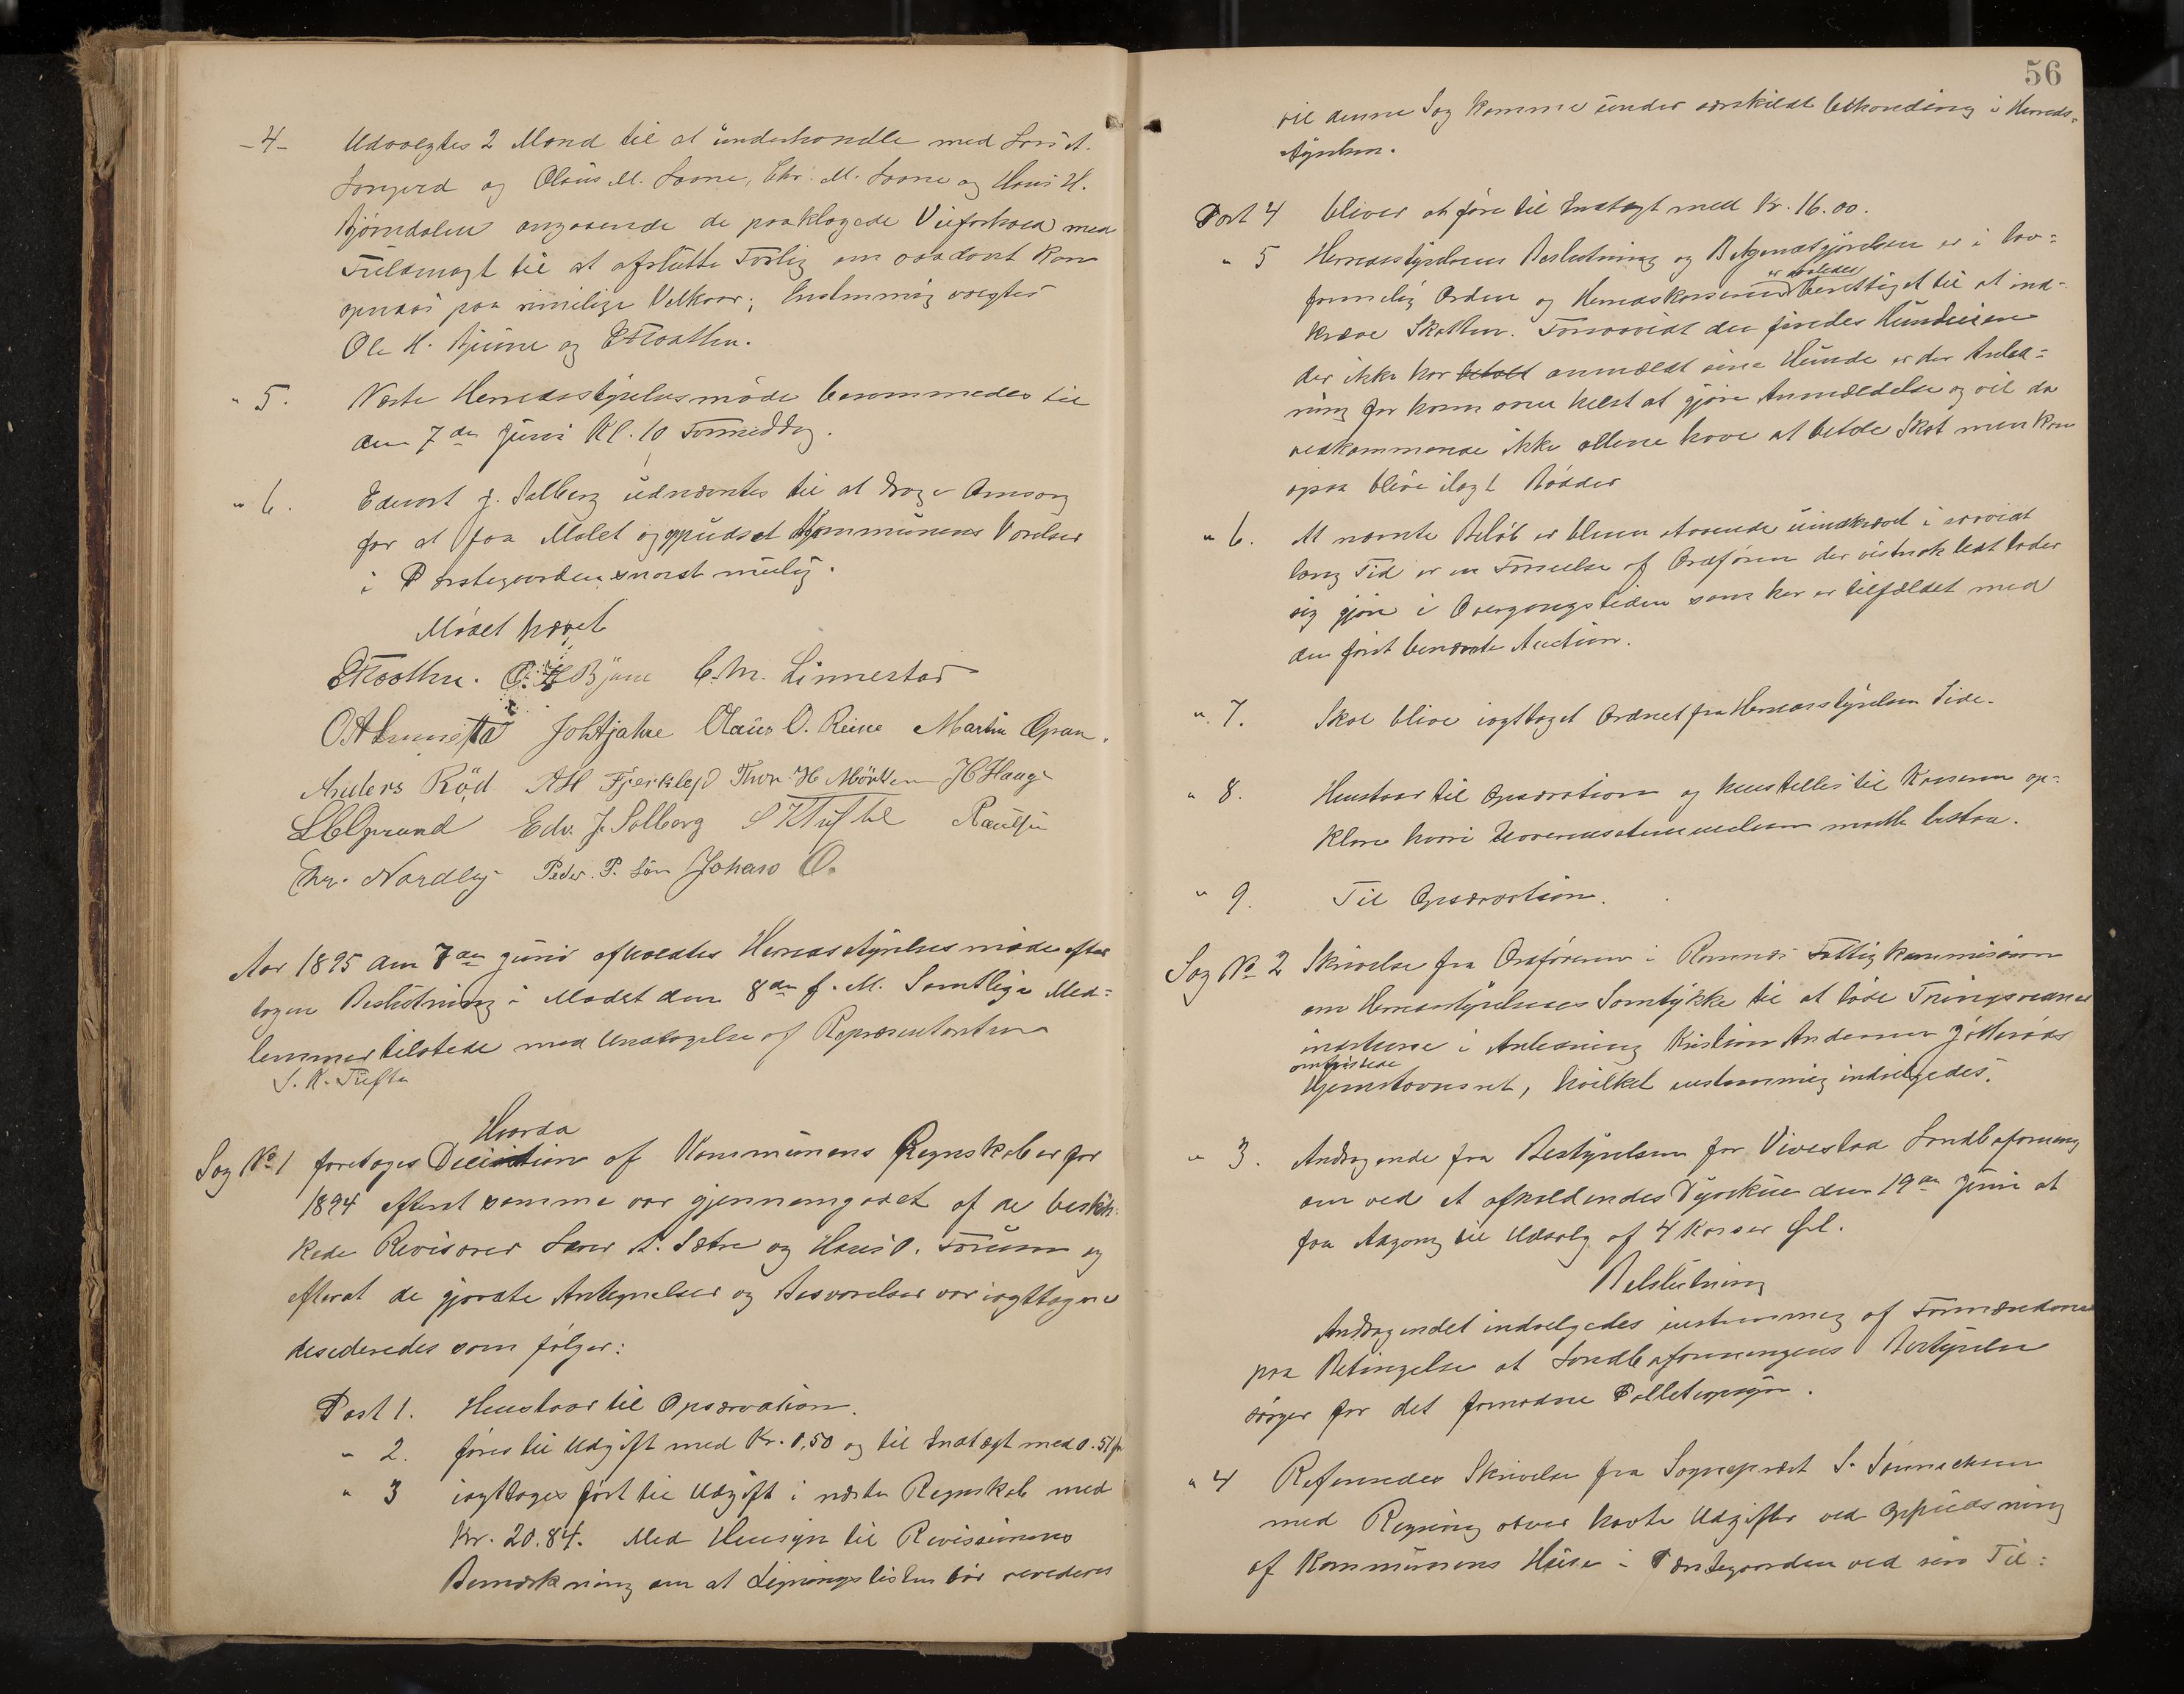 -4- Udvalgtes 2 Mænd til at underhandle med Lars A.
og Olaus M. Sørne, Chr. M. Sørne og Hans H.
Bjørndalen angaaende de paaklagede Veiforhold med
Fuldmagt til at afslutte Forlig om saadant kan
opnaaes paa rimelige Velkaar; Enstemmig valgtes
Ole H. Bjune og E Floathen.
" 5. Næste Herredsstyrelsesmøde berammedes til
den 7de Juni Kl. 10 Formiddag.
" 6. Edvart J. Solberg udnævntes til at drage Omsorg
for at faa Malet og oppudset Kommunens Værelser
i Præstegaarden snarst mulig.
Mødet hævet
E Floathen. O. H Bjune C. M. Linnestad
Joh Hjahre Olaus O. Reine Martin Gran.
Anders Röd A H Fjerkleip Thor H. Mørken J C Hauge
Edv. J. Solberg S K Tufte Paulsen
Chr. Nordby Peder P. Søn Johan O.
Aar 1895 den 7de Juni afholdtes Herredsstyrelsesmøde efter
tagen Beslutning i Mødet den 8de f. M. Samtlige Med=
lemmer tilstede med Undtagelse af Repræsentanten
S. K. Tufte
Hvorda
Sag No 1 foretoges Decision af Kommunens Regnskaber for
1894 efterat samme var gjennemgaaet af de beskik-
kede Revisorer Lærer A. Sætre og Hans O. Forum og
efterat de gjorte Antegnelser og Besvarelser var iagttagne
desideredes som følger:
Post 1. Henstaar til Opservation.
" 2. føres til Udgift med Kr. 0,50 og til Indtægt med 0.51
" 3 iagttages ført til Udgift i næste Regnskab med
Kr. 20.84. Med Hensyn til Revisionens
Bemærkning om at Ligningslisten bør revideres
56
vil denne Sag komme under særskildt behandling i Herreds=
styrelsen.
Post 4 bliver at føre til Indtægt med Kr. 16.00.
" 5 Herredsstyrelsens Beslutning og Bekjendtgjørelsen er i lov=
er saaledes
formelig Orden og Herredskasseren berettiget til at ind-
kræve Skatten. Forsaavidt der findes Hundeeiere
der ikke har betalt anmeldt sine Hunde er der Anled=
ning for hvem som helst at gjøre Anmeldelse og vil da
vedkommende ikke allene have at betale Skat men kan
ogsaa blive ilagt Bødder
" 6. At nævnte Beløb er bleven staaende uindkrævet i saavidt
lang Tid er en Forseelse af Ordføren der vistnok let lader
sig gjøre i Overgangstiden som her er tilfældet med
den først benævnte Auction.
" 7. Skal blive iagttaget Ordnet fra Herredsstyrelsen Side.
" 8. Henstaar til Opservation og henstilles til Kasseren op=
klare hvori Uoverensstemmelsen maatte bestaa.
" 9. Til Opservation.
Sag No 2 Skrivelse fra Ordføreren i Ramnæs Fattigkommission
om Herredsstyrelsens Samtykke til at lade Tvingsvidner
indstevne i Anledning Kristian Andersen
omtvistede
Hjemstavnsret, hvilket enstemmig indvilgedes.
" 3. Andragende fra Bestyrelsen for Vivestad Landboforening
om ved et afholdendes Dyrskue den 19de Juni at
faa Adgang til Udsalg af 4 Kasser Øl.
Belsutning
Andragendet indvilgedes enstemmig af Formændene
paa Betingelse at Landboforeningens Bestyrelse
sørger for det fornødne Politiopsyn.
" 4 Refereredes Skrivelse fra Sognepræst S. Sønnichsen
med Regning over havte Udgifter ved Oppudsning
af Kommunens Huse i Præstegaarden ved sin Til=